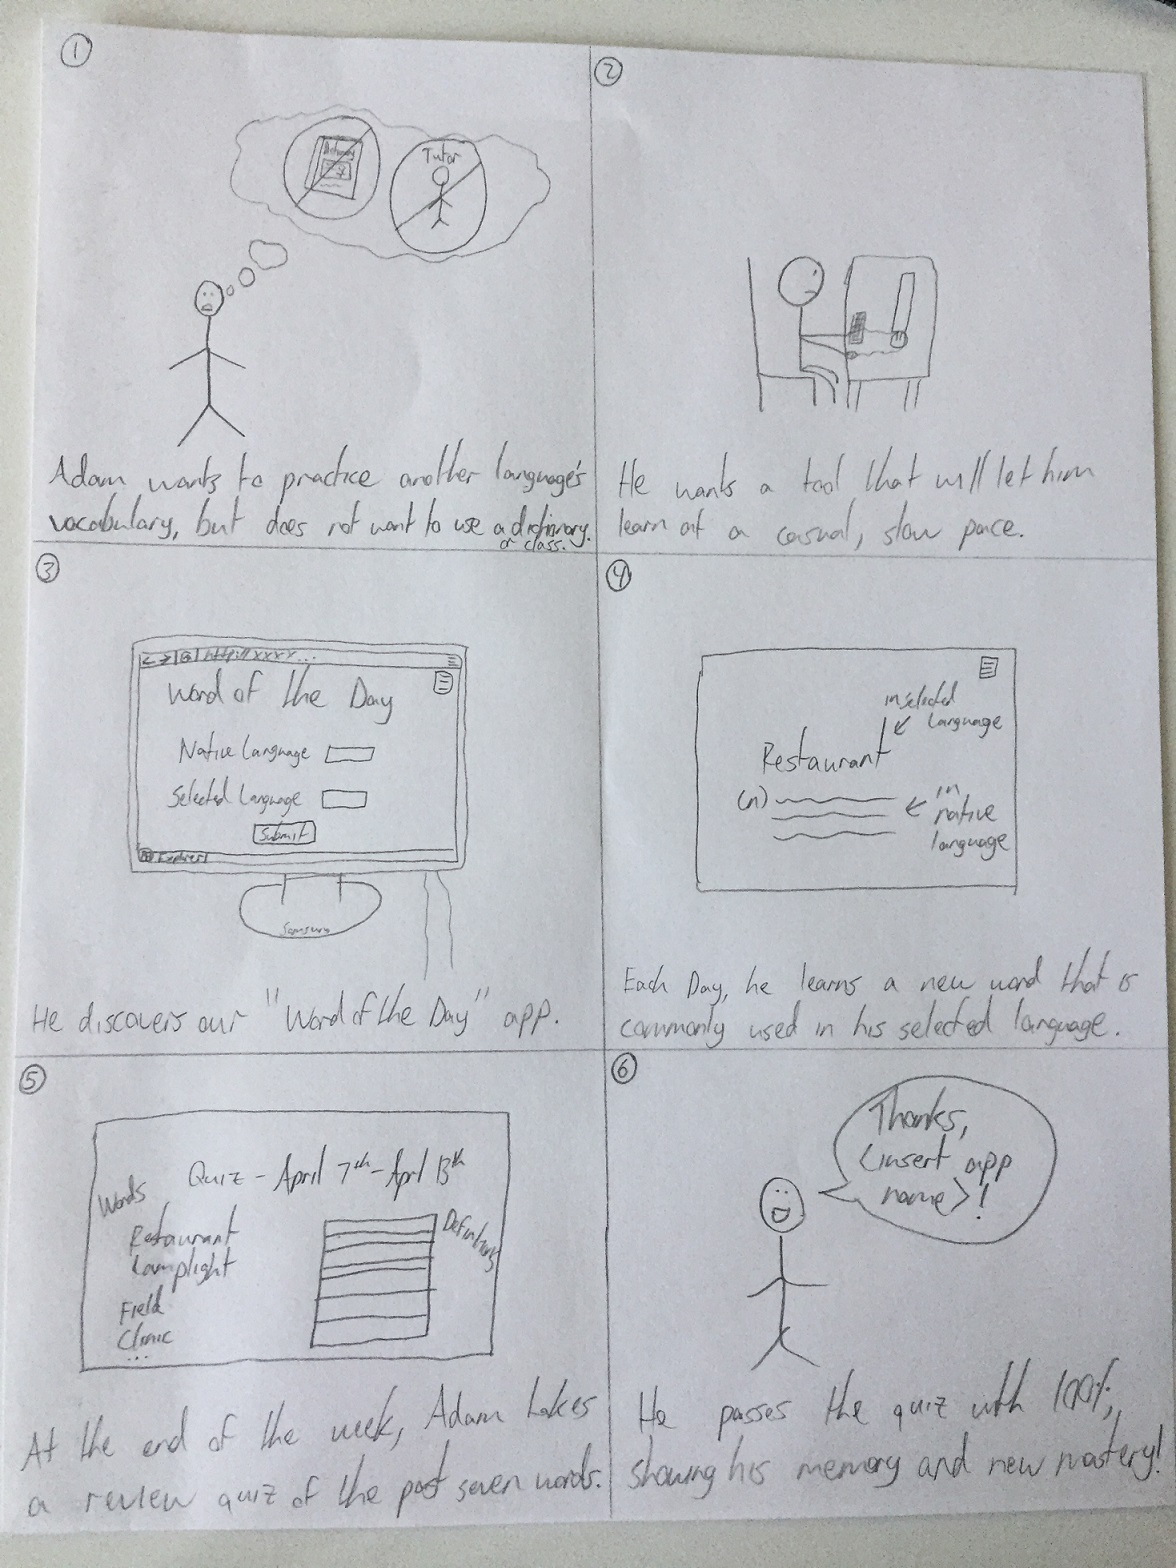 ①
Tutor
Adam wants to practice another language's
vocabulary, but does not want to use a dictionary
or class.
②
He wants a tool that will let him
learn at a casual, slow pace.
③
Word of the Day
Native language
Selected language
Submit
Samsung
He discovers our "Word of the Day" app.
④
in selected
language
Restaurant
(n)
in native
language
Each Day, he learns a new word that is
commonly used in his selected language.
⑤
Quiz - April 7th - April 13th
Words
Restaurant
Lamplight
Field
Chime
Definitions
At the end of the week, Adam takes
a review quiz of the past seven words.
⑥
Thanks,
<insert app
name>!
He passes the quiz with 100%,
showing his memory and new mastery!